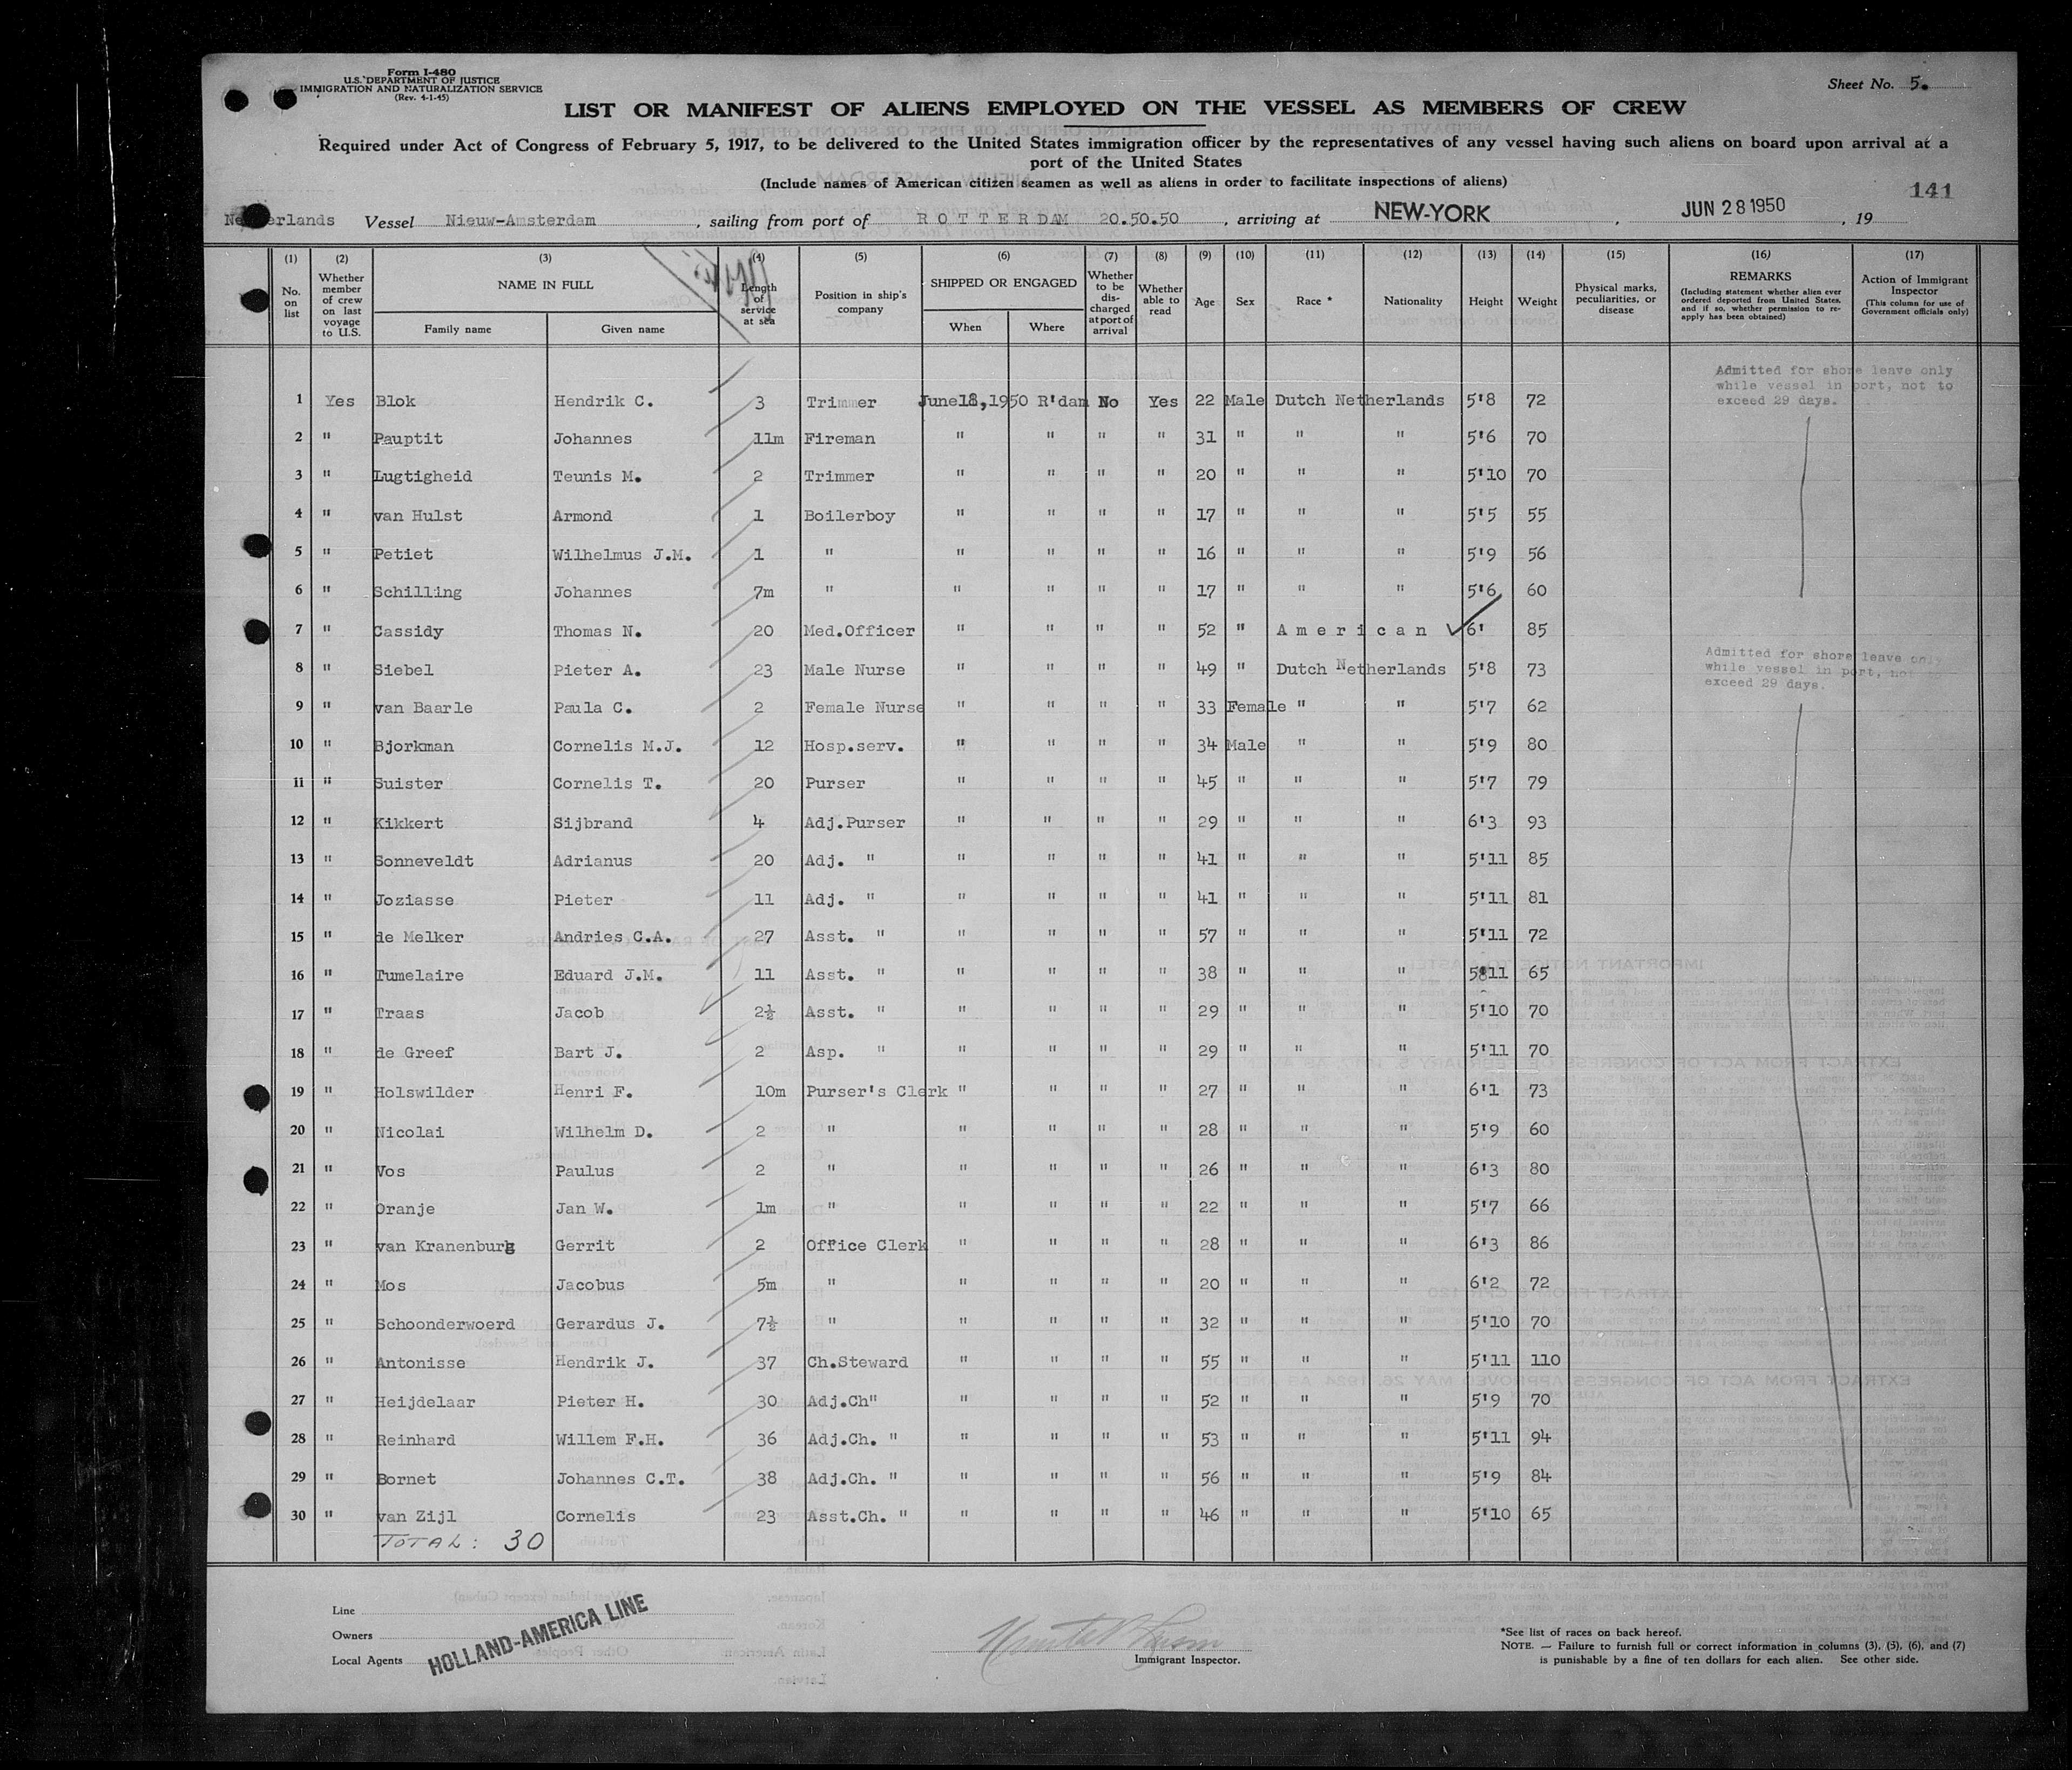 Form I-480
U.S. DEPARTMENT OF JUSTICE
IMMIGRATION AND NATURALIZATION SERVICE
(Rev. 4-1-45)
Sheet No. 5.
LIST OR MANIFEST OF ALIENS EMPLOYED ON THE VESSEL AS MEMBERS OF CREW
Required under Act of Congress of February 5, 1917, to be delivered to the United States immigration officer by the representatives of any vessel having such aliens on board upon arrival at a
port of the United States
(Include names of American citizen seamen as well as aliens in order to facilitate inspections of aliens)
141
Netherlands Vessel Nieuw-Amsterdam, sailing from port of ROTTERDAM 20.50.50, arriving at NEW-YORK, JUN 28 1950, 19
(1) No. on list (2) Whether member of crew on last voyage to U.S. (3) NAME IN FULL Family name Given name (4) Length of service at sea (5) Position in ship's company (6) SHIPPED OR ENGAGED When Where (7) Whether to be discharged at port of arrival (8) Whether able to read (9) Age (10) Sex (11) Race * (12) Nationality (13) Height (14) Weight (15) Physical marks, peculiarities, or disease (16) REMARKS (Including statement whether alien ever ordered deported from United States, and if so, whether permission to re-apply has been obtained) (17) Action of Immigrant Inspector (This column for use of Government officials only)
Admitted for shore leave only
while vessel in port, not to
exceed 29 days.
1 Yes Blok Hendrik C. 3 Trimmer June 18, 1950 R'dam No Yes 22 Male Dutch Netherlands 5'8 72
2 " Pauptit Johannes 11m Fireman " " " " 31 " " " 5'6 70
3 " Lugtigheid Teunis M. 2 Trimmer " " " " 20 " " " 5'10 70
4 " van Hulst Armond 1 Boilerboy " " " " 17 " " " 5'5 55
5 " Petiet Wilhelmus J.M. 1 " " " " " 16 " " " 5'9 56
6 " Schilling Johannes 7m " " " " " 17 " " " 5'6 60
7 " Cassidy Thomas N. 20 Med.Officer " " " " 52 " American 6' 85
Admitted for shore leave only
while vessel in port, not
exceed 29 days.
8 " Siebel Pieter A. 23 Male Nurse " " " " 49 " Dutch Netherlands 5'8 73
9 " van Baarle Paula C. 2 Female Nurse " " " " 33 Female " " 5'7 62
10 " Bjorkman Cornelis M.J. 12 Hosp.serv. " " " " 34 Male " " 5'9 80
11 " Suister Cornelis T. 20 Purser " " " " 45 " " " 5'7 79
12 " Kikkert Sijbrand 4 Adj.Purser " " " " 29 " " " 6'3 93
13 " Sonneveldt Adrianus 20 Adj. " " " " " 41 " " " 5'11 85
14 " Joziasse Pieter 11 Adj. " " " " " 41 " " " 5'11 81
15 " de Melker Andries C.A. 27 Asst. " " " " " 57 " " " 5'11 72
16 " Tumelaire Eduard J.M. 11 Asst. " " " " " 38 " " " 5'11 65
17 " Traas Jacob 2½ Asst. " " " " " 29 " " " 5'10 70
18 " de Greef Bart J. 2 Asp. " " " " " 29 " " " 5'11 70
19 " Holswilder Henri F. 10m Purser's Clerk " " " " 27 " " " 6'1 73
20 " Nicolai Wilhelm D. 2 " " " " " 28 " " " 5'9 60
21 " Vos Paulus 2 " " " " " 26 " " " 6'3 80
22 " Oranje Jan W. 1m " " " " " 22 " " " 5'7 66
23 " van Kranenburg Gerrit 2 Office Clerk " " " " 28 " " " 6'3 86
24 " Mos Jacobus 5m " " " " " 20 " " " 6'2 72
25 " Schoonderwoerd Gerardus J. 7½ " " " " " 32 " " " 5'10 70
26 " Antonisse Hendrik J. 37 Ch.Steward " " " " 55 " " " 5'11 110
27 " Heijdelaar Pieter H. 30 Adj.Ch" " " " " 52 " " " 5'9 70
28 " Reinhard Willem F.H. 36 Adj.Ch. " " " " " 53 " " " 5'11 94
29 " Bornet Johannes C.T. 38 Adj.Ch. " " " " " 56 " " " 5'9 84
30 " van Zijl Cornelis 23 Asst.Ch. " " " " " 46 " " " 5'10 65
TOTAL: 30
Line
Owners
Local Agents
HOLLAND-AMERICA LINE
Immigrant Inspector.
*See list of races on back hereof.
NOTE. — Failure to furnish full or correct information in columns (3), (5), (6), and (7)
is punishable by a fine of ten dollars for each alien. See other side.